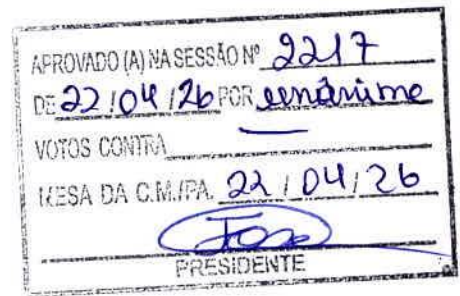 APROVADO (A) NA SESSÃO Nº 2217
DE 22/04/26 POR unânime
VOTOS CONTRA —
MESA DA C.M./PA. 22/04/26
PRESIDENTE